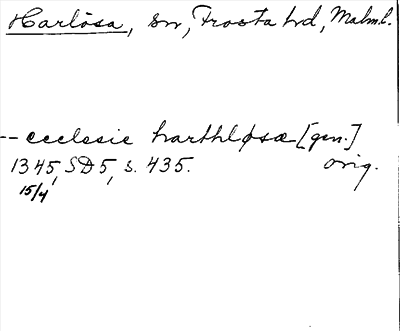 Harlösa, sn, Frosta hd, Malml.
-- ecclesie harthløsæ [gen.]
1345, SD 5, s. 435. orig.
15/4